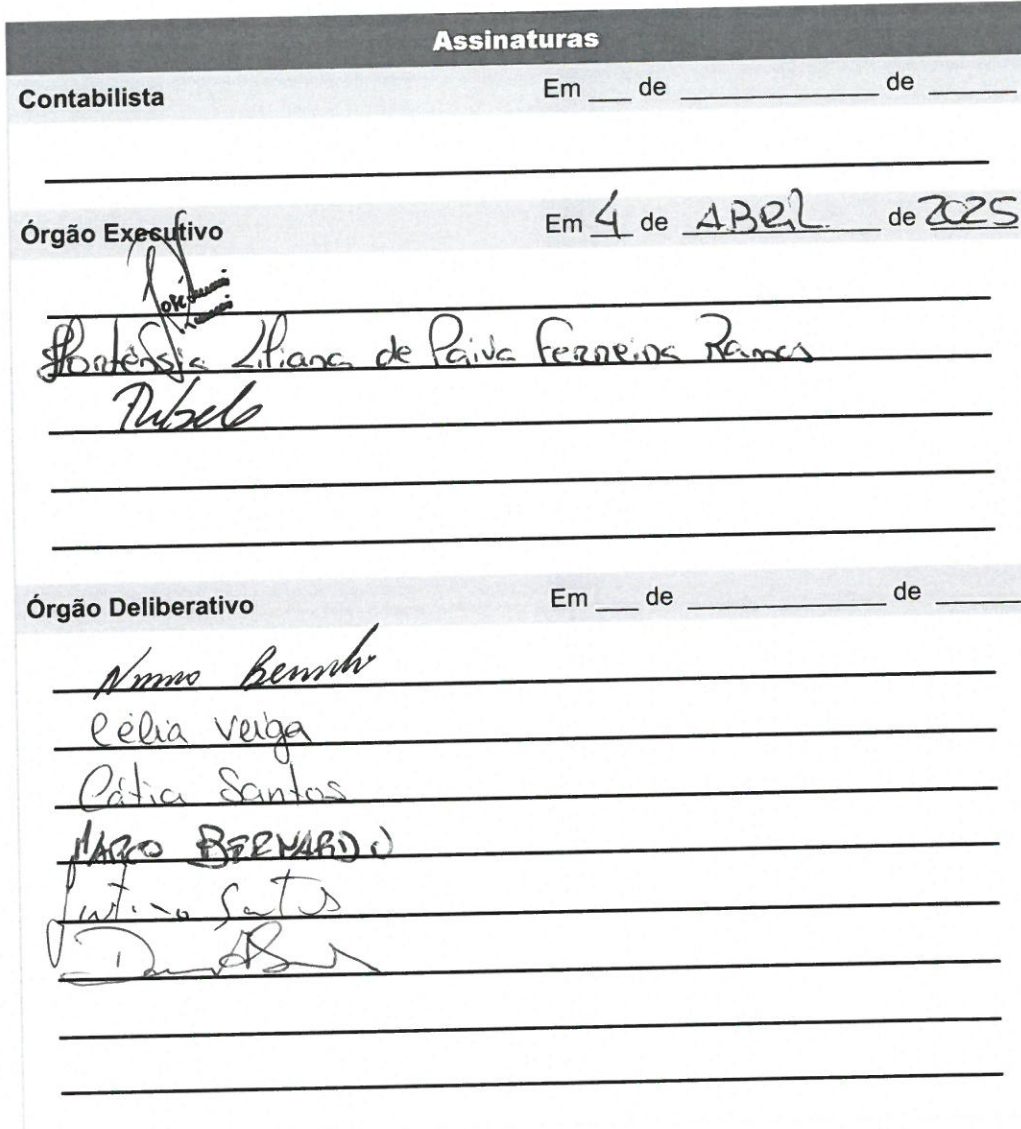 Assinaturas
Contabilista Em ___ de ___ de ___
Órgão Executivo Em 4 de ABRIL de 2025
José
Hortênsia Liliana de Paiva Ferreira Ramos
Órgão Deliberativo Em ___ de ___ de ___
Nuno
Célia Veiga
Cátia Santos
MARCO BERNARDO
Santos